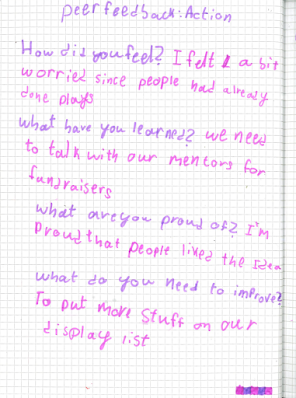 peer feedback: Action
How did you feel? I felt a bit
worried since people had already
done plays
what have you learned? we need
to talk with our mentors for
fundraisers
what are you proud of? I'm
Proud that people liked the Idea
what do you need to improve?
To put more stuff on our
display list